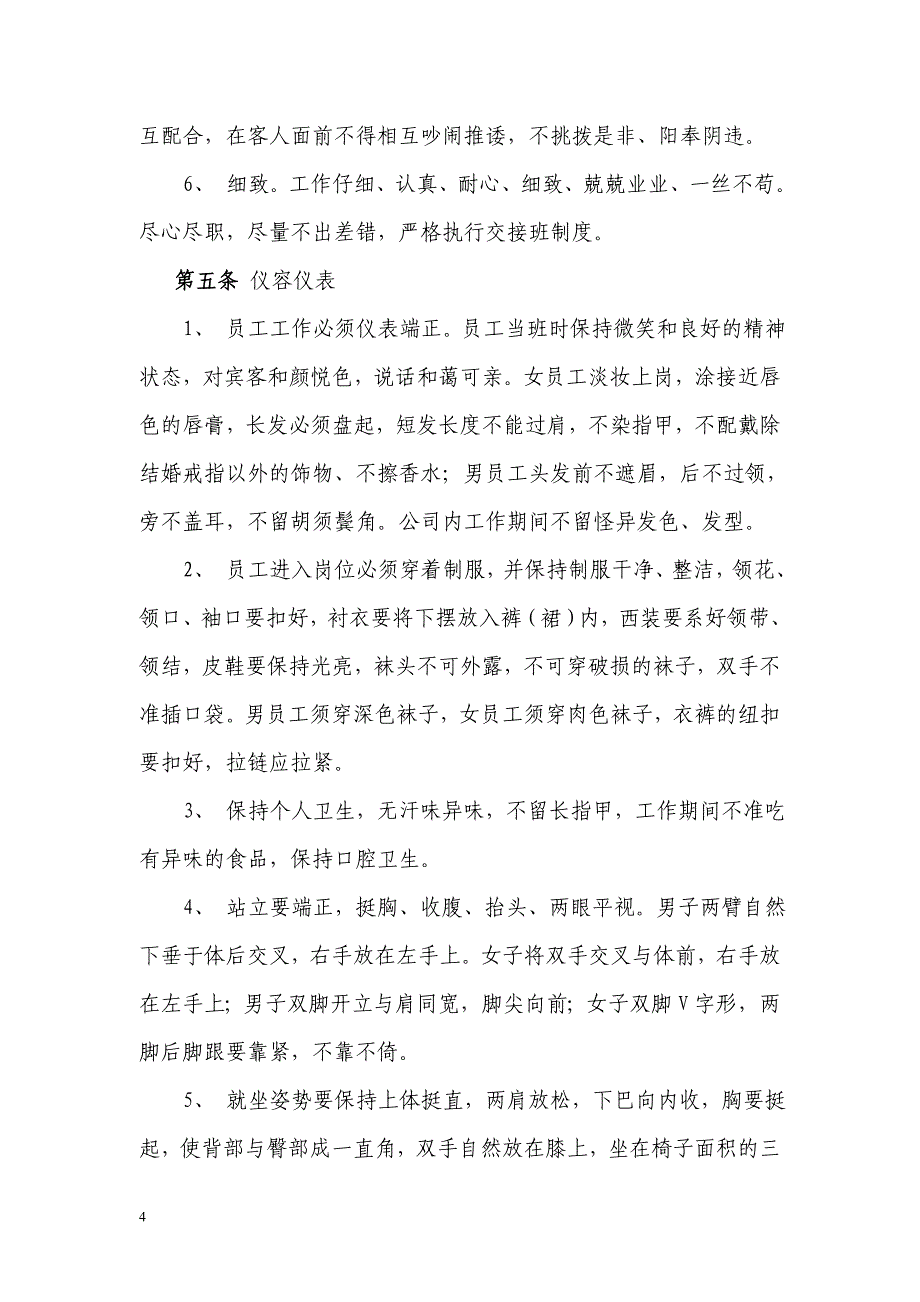 互配合，在客人面前不得相互吵闹推诿，不挑拨是非、阳奉阴违。
6、 细致。工作仔细、认真、耐心、细致、兢兢业业、一丝不苟。
尽心尽职，尽量不出差错，严格执行交接班制度。
第五条 仪容仪表
1、 员工工作必须仪表端正。员工当班时保持微笑和良好的精神
状态，对宾客和颜悦色，说话和蔼可亲。女员工淡妆上岗，涂接近唇
色的唇膏，长发必须盘起，短发长度不能过肩，不染指甲，不配戴除
结婚戒指以外的饰物、不擦香水；男员工头发前不遮眉，后不过领，
旁不盖耳，不留胡须鬓角。公司内工作期间不留怪异发色、发型。
2、 员工进入岗位必须穿着制服，并保持制服干净、整洁，领花、
领口、袖口要扣好，衬衣要将下摆放入裤（裙）内，西装要系好领带、
领结，皮鞋要保持光亮，袜头不可外露，不可穿破损的袜子，双手不
准插口袋。男员工须穿深色袜子，女员工须穿肉色袜子，衣裤的纽扣
要扣好，拉链应拉紧。
3、 保持个人卫生，无汗味异味，不留长指甲，工作期间不准吃
有异味的食品，保持口腔卫生。
4、 站立要端正，挺胸、收腹、抬头、两眼平视。男子两臂自然
下垂于体后交叉，右手放在左手上。女子将双手交叉与体前，右手放
在左手上；男子双脚开立与肩同宽，脚尖向前；女子双脚 V 字形，两
脚后脚跟要靠紧，不靠不倚。
5、 就坐姿势要保持上体挺直，两肩放松，下巴向内收，胸要挺
起，使背部与臀部成一直角，双手自然放在膝上，坐在椅子面积的三
4